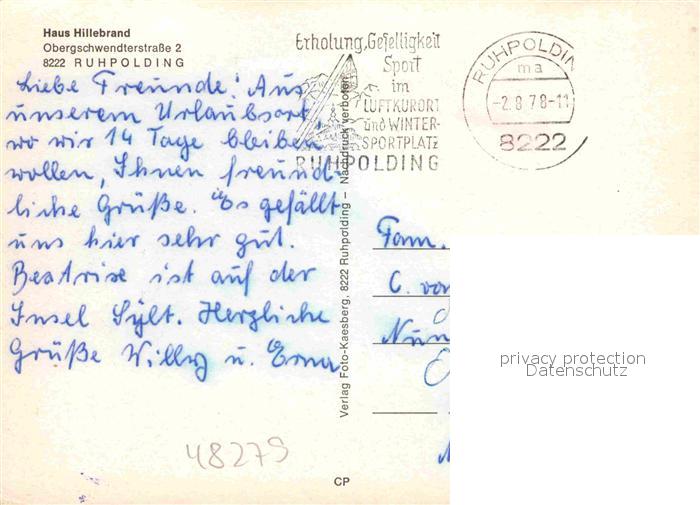 Haus Hillebrand
Obergschwendterstraße 2
8222 RUHPOLDING
Liebe Freunde! Aus
unserem Urlaubsort
wo wir 14 Tage bleiben
wollen, Ihnen freund-
liche Grüße. Es gefällt
uns hier sehr gut.
Beatrixe ist auf der
Insel Sylt. Herzliche
Grüße Willy u. Erna
48279
Verlag Foto-Kaesberg, 8222 Ruhpolding – Nachdruck verboten
CP
Erholung, Geselligkeit
Sport
im
LUFTKURORT
und WINTER-
SPORTPLATZ
RUHPOLDING
RUHPOLDIN
ma
-2.8.78-11
8222
Fam.
C. von
Nün
privacy protection
Datenschutz